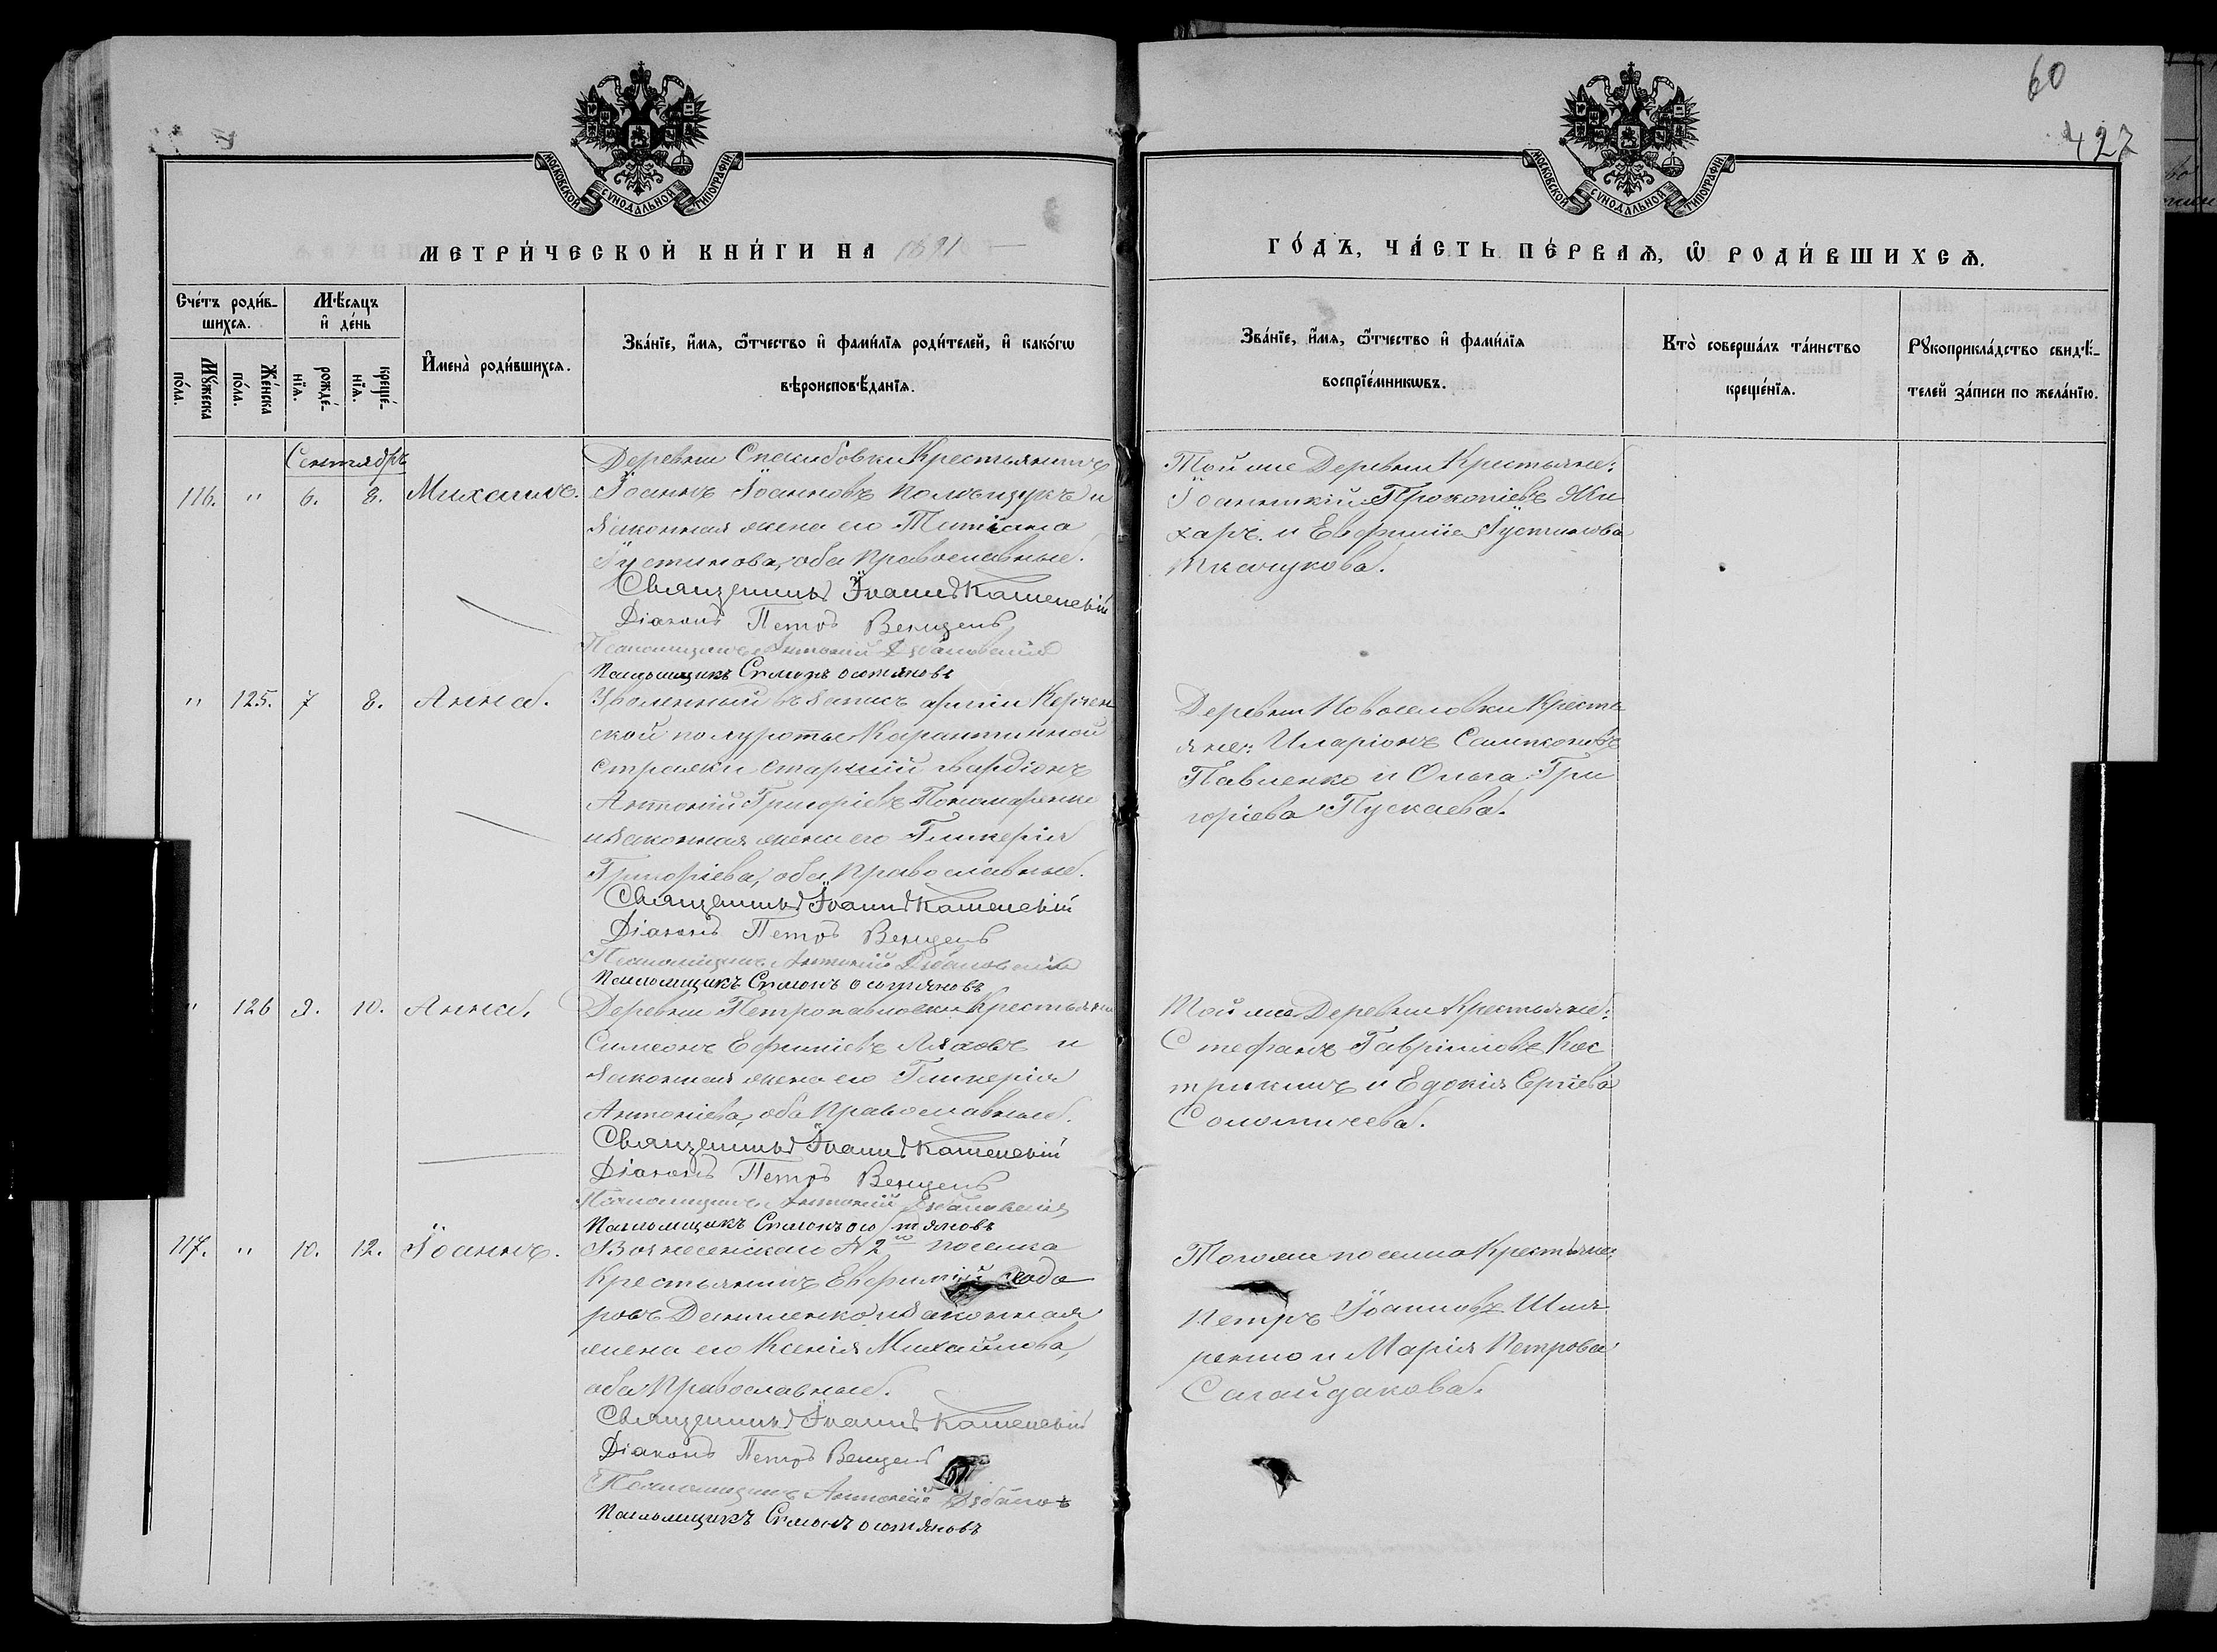 60
427
МОСКОВСКОЙ СѴНОДАЛЬНОЙ ТИПОГРАФІИ
МОСКОВСКОЙ СѴНОДАЛЬНОЙ ТИПОГРАФІИ
МЕТРИ́ЧЕСКОЙ КНИ́ГИ НА 1891
ГО́ДЪ, ЧА́СТЬ ПЕ́РВАѦ, Ѡ҆ РОДИ́ВШИХСѦ.
Сче́тъ роди́в-
шихсѧ.
Мѣ́сѧцъ
и҆ де́нь
Мꙋ́жеска
по́ла.
Же́нска
по́ла.
рожде́-
нїѧ.
креще́-
нїѧ.
И҆мена̀ роди́вшихсѧ.
Зва́нїе, и҆́мѧ, ѻ҆́тчество и҆ фами́лїѧ роди́телей, и҆ како́гѡ
вѣроисповѣ́данїѧ.
Зва́нїе, и҆́мѧ, ѻ҆́тчество и҆ фами́лїѧ
воспрїе́мникѡвъ.
Кто̀ соверша́лъ та́инство
креще́нїѧ.
Рꙋкоприкла́дство свидѣ́-
телей за́писи по жела́нїю.
Сентябрь
116. " 6. 8. Михаилъ.
Деревни Крестьянинъ
Іоаннъ Іоанновъ и
законная жена его Татіана
Іустинова, оба православные.
Священникъ Іоаннъ Каменскій
Діаконъ Петръ Венцель
Псаломщикъ Антоній
Псаломщикъ Симонъ Остяновъ
Той же Деревни Крестьяне:
Іоанникій Прокопіевъ Жи
харь и Евфимія Іустинова
Ткачукова.
" 125. 7 8. Анна.
Уволенный въ запасъ арміи Керчен
ской полуроты Карантинной
стражи старшій гвардіонъ
Антоній Григоріевъ Пономаренко
и законная жена его Гликерія
Григоріева, оба православные.
Священникъ Іоаннъ Каменскій
Діаконъ Петръ Венцель
Псаломщикъ Антоній
Псаломщикъ Симонъ Остяновъ
Деревни Новоселовки Кресть
яне: Иларіонъ Сампсоновъ
Павленко и Ольга Гри
горіева Пускаева.
" 126 9. 10. Анна.
Деревни Петропавловки Крестьянинъ
Симеонъ Ефиміевъ Ляховъ и
законная жена его Гликерія
Антоніева, оба православные.
Священникъ Іоаннъ Каменскій
Діаконъ Петръ Венцель
Псаломщикъ Антоній
Псаломщикъ Симонъ Остяновъ
Той же Деревни Крестьяне:
Стефанъ Гавріиловъ Кос
трикинъ и Едокія Сергіева
117. " 10. 12. Іоаннъ.
Вознесенскаго №2го поселка
Крестьянинъ Евфимій Ѳеодо
ровъ Даниленко и законная
жена его Ксенія Михайлова,
оба православные.
Священникъ Іоаннъ Каменскій
Діаконъ Петръ Венцель
Псаломщикъ Антоній
Псаломщикъ Симонъ Остяновъ
Того же поселка Крестьяне:
Петръ Іоанновъ Шка
ренко и Марія Петрова
Сагайдакова.